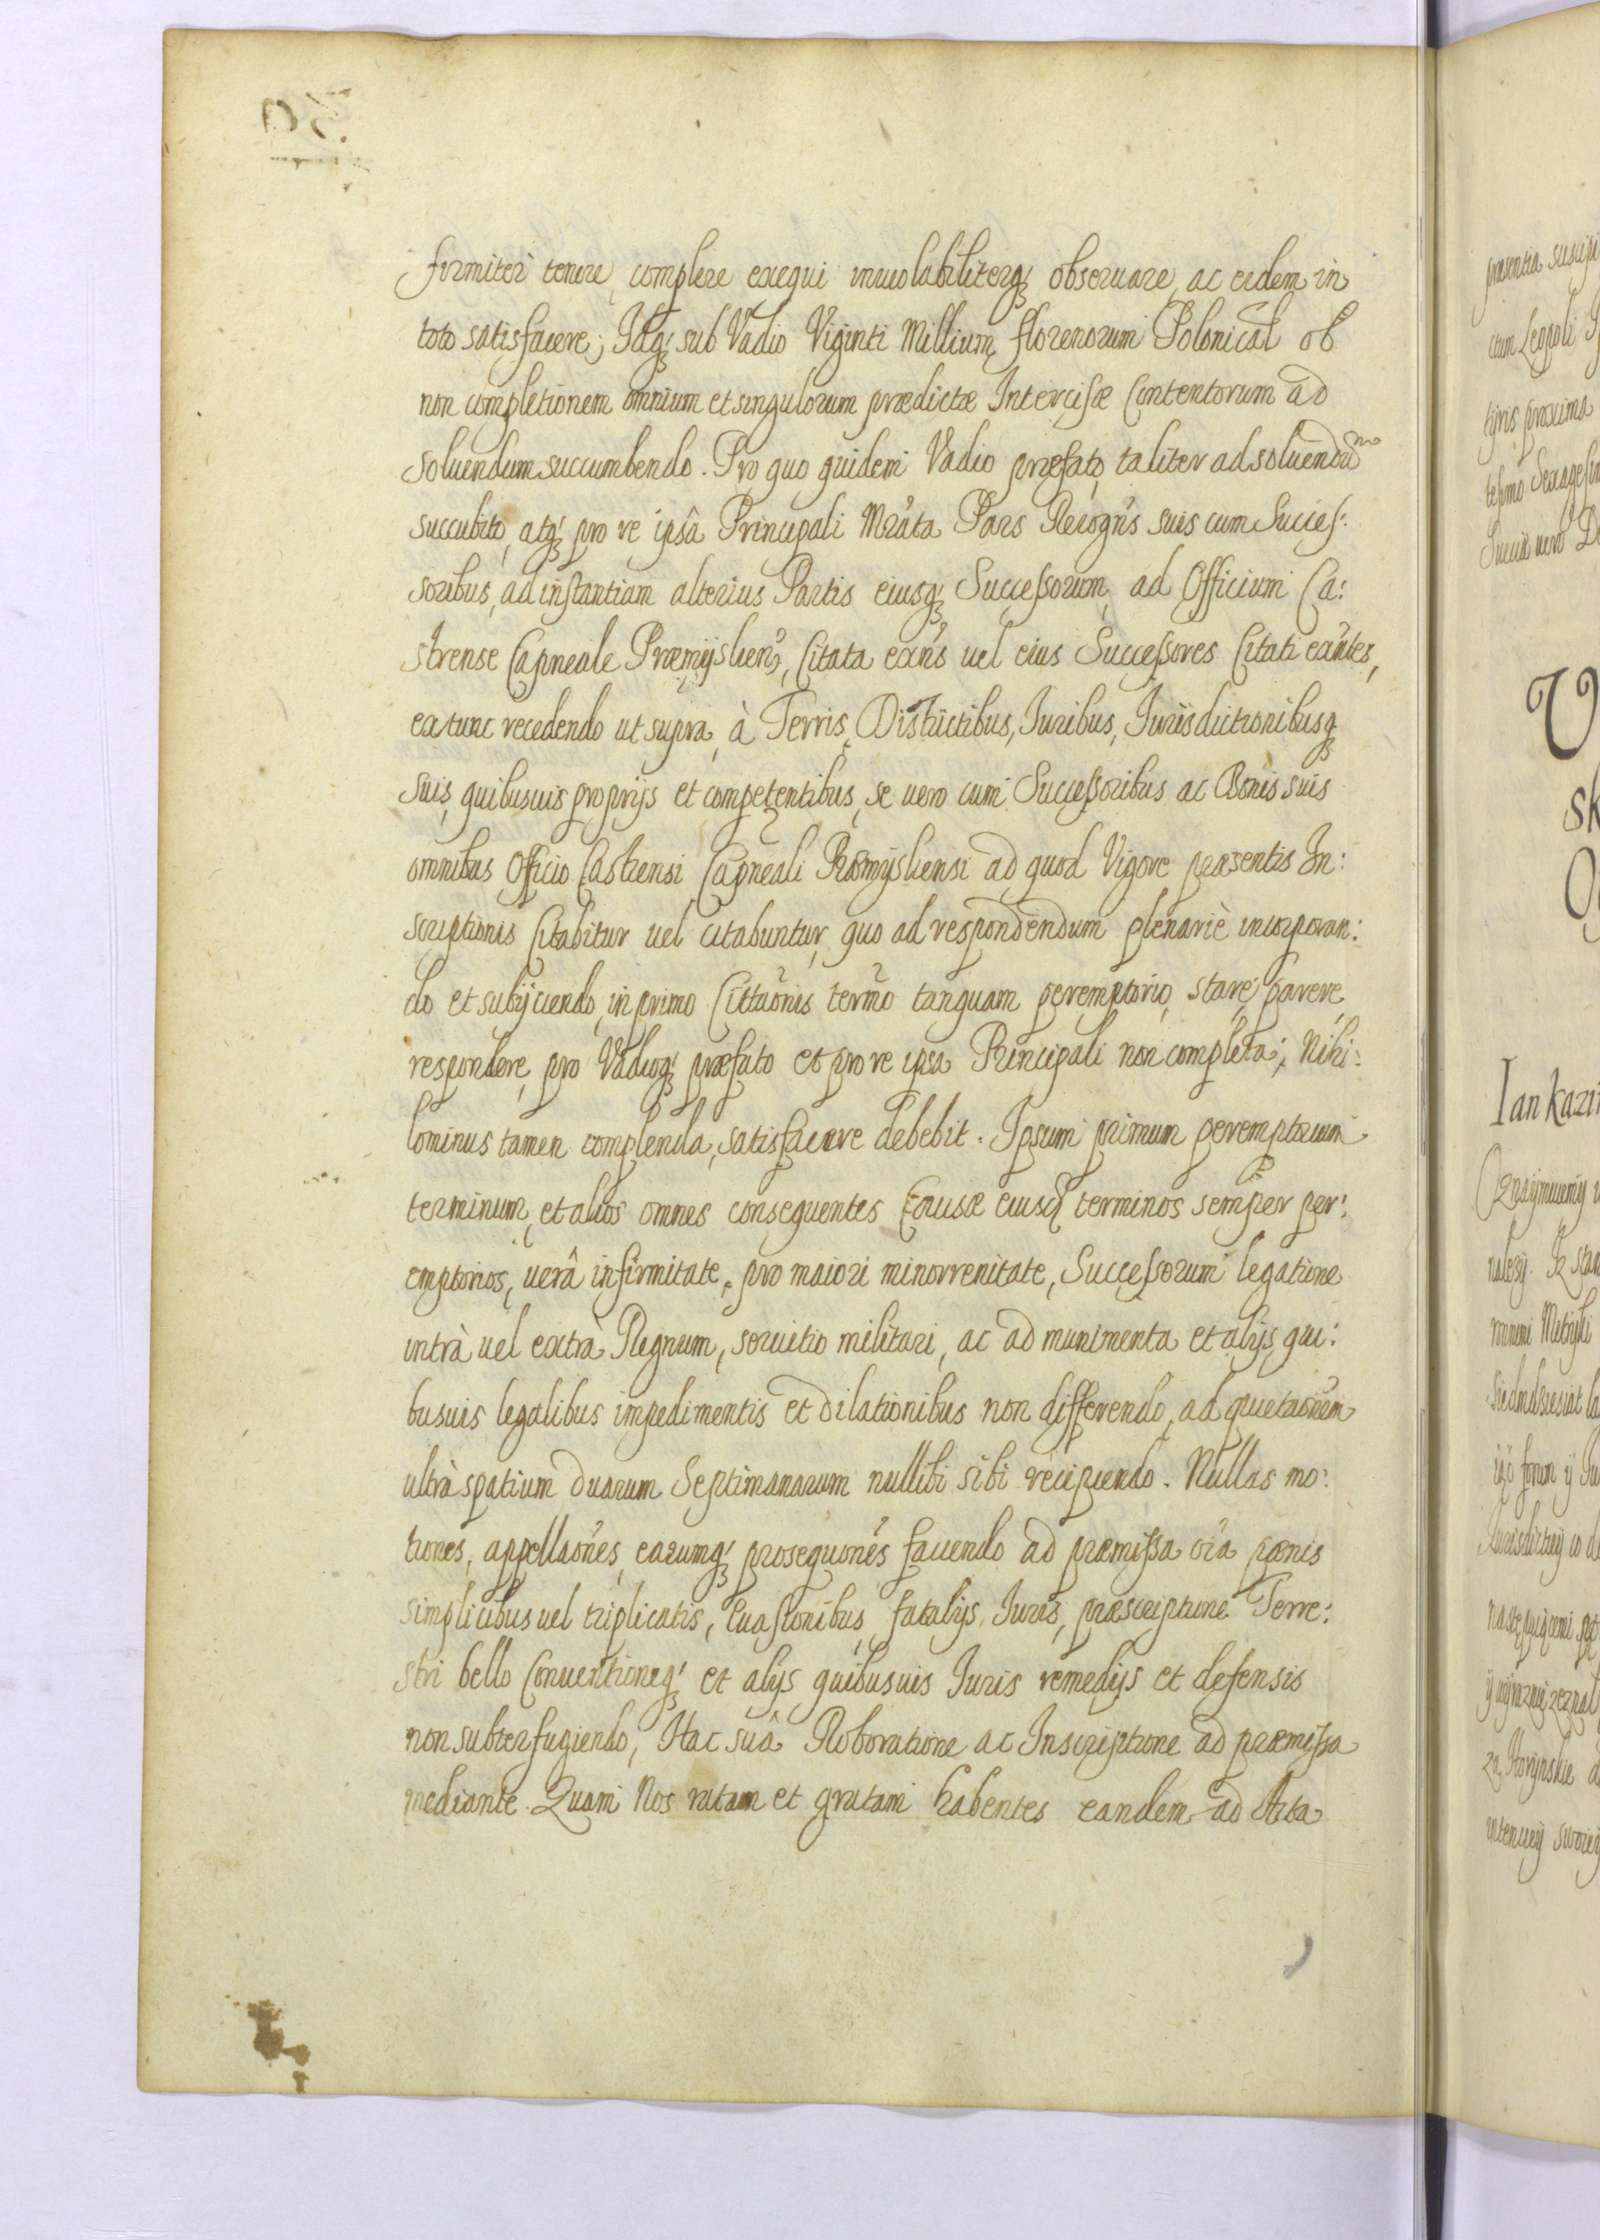 firmiter tenere, complere exequi inuiolabiliterq; obseruare, ac eidem in
toto satisfacere; Idq; sub Vadio Viginti Millium florenorum Polonical ob
non completionem omnium et singulorum prædictæ Intercisæ Contentorum ad
soluendum succumbendo. Pro quo quidem Vadio præfato, taliter ad soluendũ
succubito, atq; pro re ipsâ Principali Mrãta Pars Recogñs suis cum Succes:
soribus, ad instantiam alterius Partis eiusq; Successorum, ad Officium Ca:
strense Capneale Præmyslieñ, Citata exñs uel eius Successores Citati exñtes,
ex tunc recedendo ut supra, à Terris, Districtibus, Iuribus, Iurisdictionibusq;
suis, quibusuis proprijs et competentibus, se uero cum Successoribus ac Bonis suis
omnibus Officio Castrensi Capneali Præmysliensi ad quod Vigore præsentis In:
scriptionis Citabitur uel citabuntur, quo ad respondendum plenariè incorporan:
do et subijciendo, in primo Cittaõnis termõ tanquam peremptorio, stare, parere,
respondere, pro Vadioq; præfato et pro re ipsa Principali non completa; Nihi:
lominus tamen complenda, satisfacere debebit. Ipsum primum peremptorium
terminum, et alios omnes consequentes Causæ eiusd terminos semper per:
emptorios, uerâ infirmitate, pro maiori minorrenitate, Successorum legatione
intrà uel extrà Regnum, seruitio militari, ac ad munimenta et alijs qui:
busuis legalibus impedimentis et dilationibus non differendo, ad quietaõnem
ultrà spatium duarum Septimanarum nullibi sibi recipiendo. Nullas mo:
tiones, appellaõnes, earumq; prosequõnes fauendo ad præmissa oĩa pænis
simplicibus uel triplicatis, Euasionibus, fatalijs Iuris, præscriptione Terre:
stri bello Conuentioneq; et alijs quibusuis Iuris remedijs et defensis
non subterfugiendo, Hac suâ Roboratione ac Inscriptione ad præmissa
mediante. Quam Nos ratam et gratam habentes eandem ad Acta